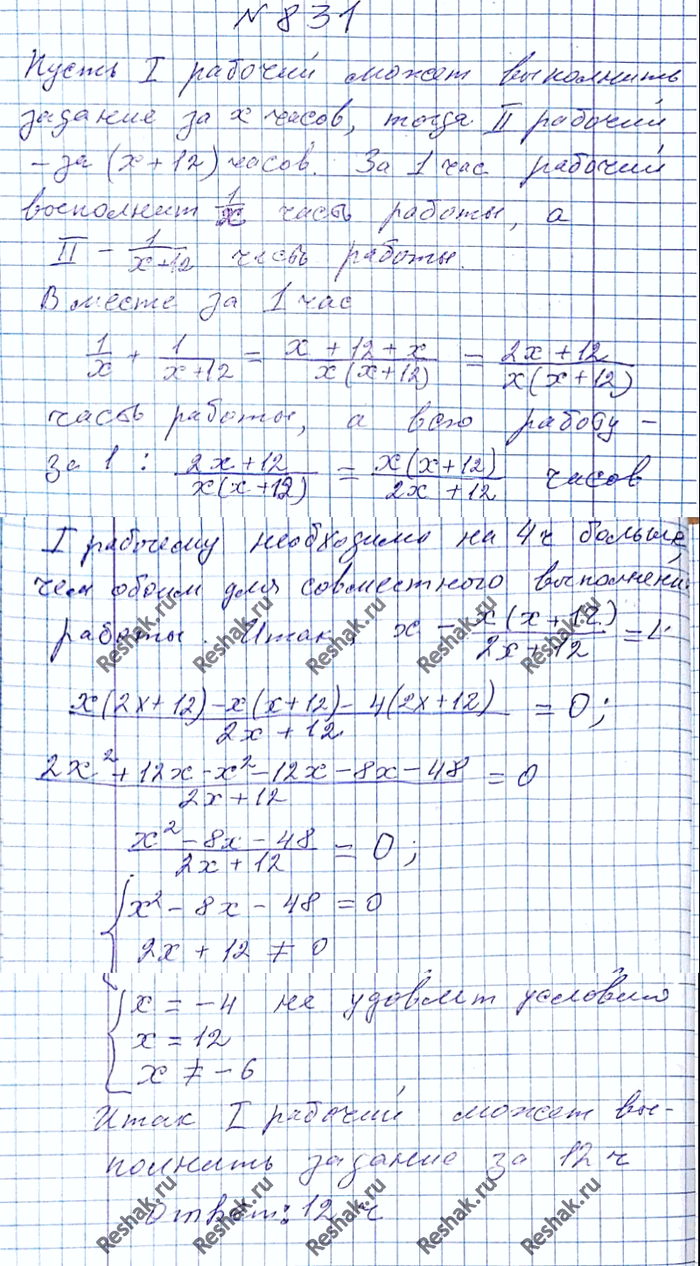 № 831
Пусть I рабочий может выполнить
задание за x часов, тогда II рабочий
– за (x+12) часов. За 1 час рабочий
восполнит 1/x часть работы, а
II – 1/(x+12) часть работы.
Вместе за 1 час
1/x + 1/(x+12) = (x + 12 + x)/(x(x+12)) = (2x+12)/(x(x+12))
часть работы, а всю работу –
за 1 : (2x+12)/(x(x+12)) = x(x+12)/(2x+12) часов
I рабочему необходимо на 4ч больше,
чем обоим для совместного выполнени
работы. Итак, x – x(x+12)/(2x+12) = 4
(x(2x+12)–x(x+12)–4(2x+12))/(2x+12) = 0;
(2x²+12x–x²–12x–8x–48)/(2x+12) = 0
(x²–8x–48)/(2x+12) = 0;
{ x²–8x–48 = 0
2x+12 ≠ 0
{ x = –4 не удовлет условию
x = 12
x ≠ –6
Итак I рабочий может вы-
полнить задание за 12 ч
Ответ: 12 ч
Reshak.ru Reshak.ru Reshak.ru Reshak.ru Reshak.ru
Reshak.ru Reshak.ru Reshak.ru Reshak.ru Reshak.ru